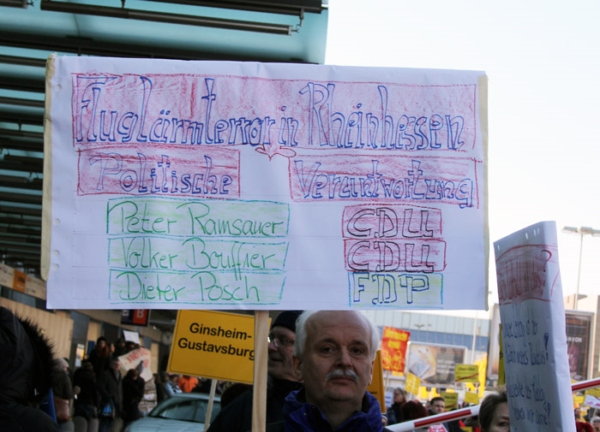 Fluglärmterror in Rheinhessen
Politische Verantwortung
Peter Ramsauer CDU
Volker Bouffier CDU
Dieter Posch FDP
Ginsheim-
Gustavsburg